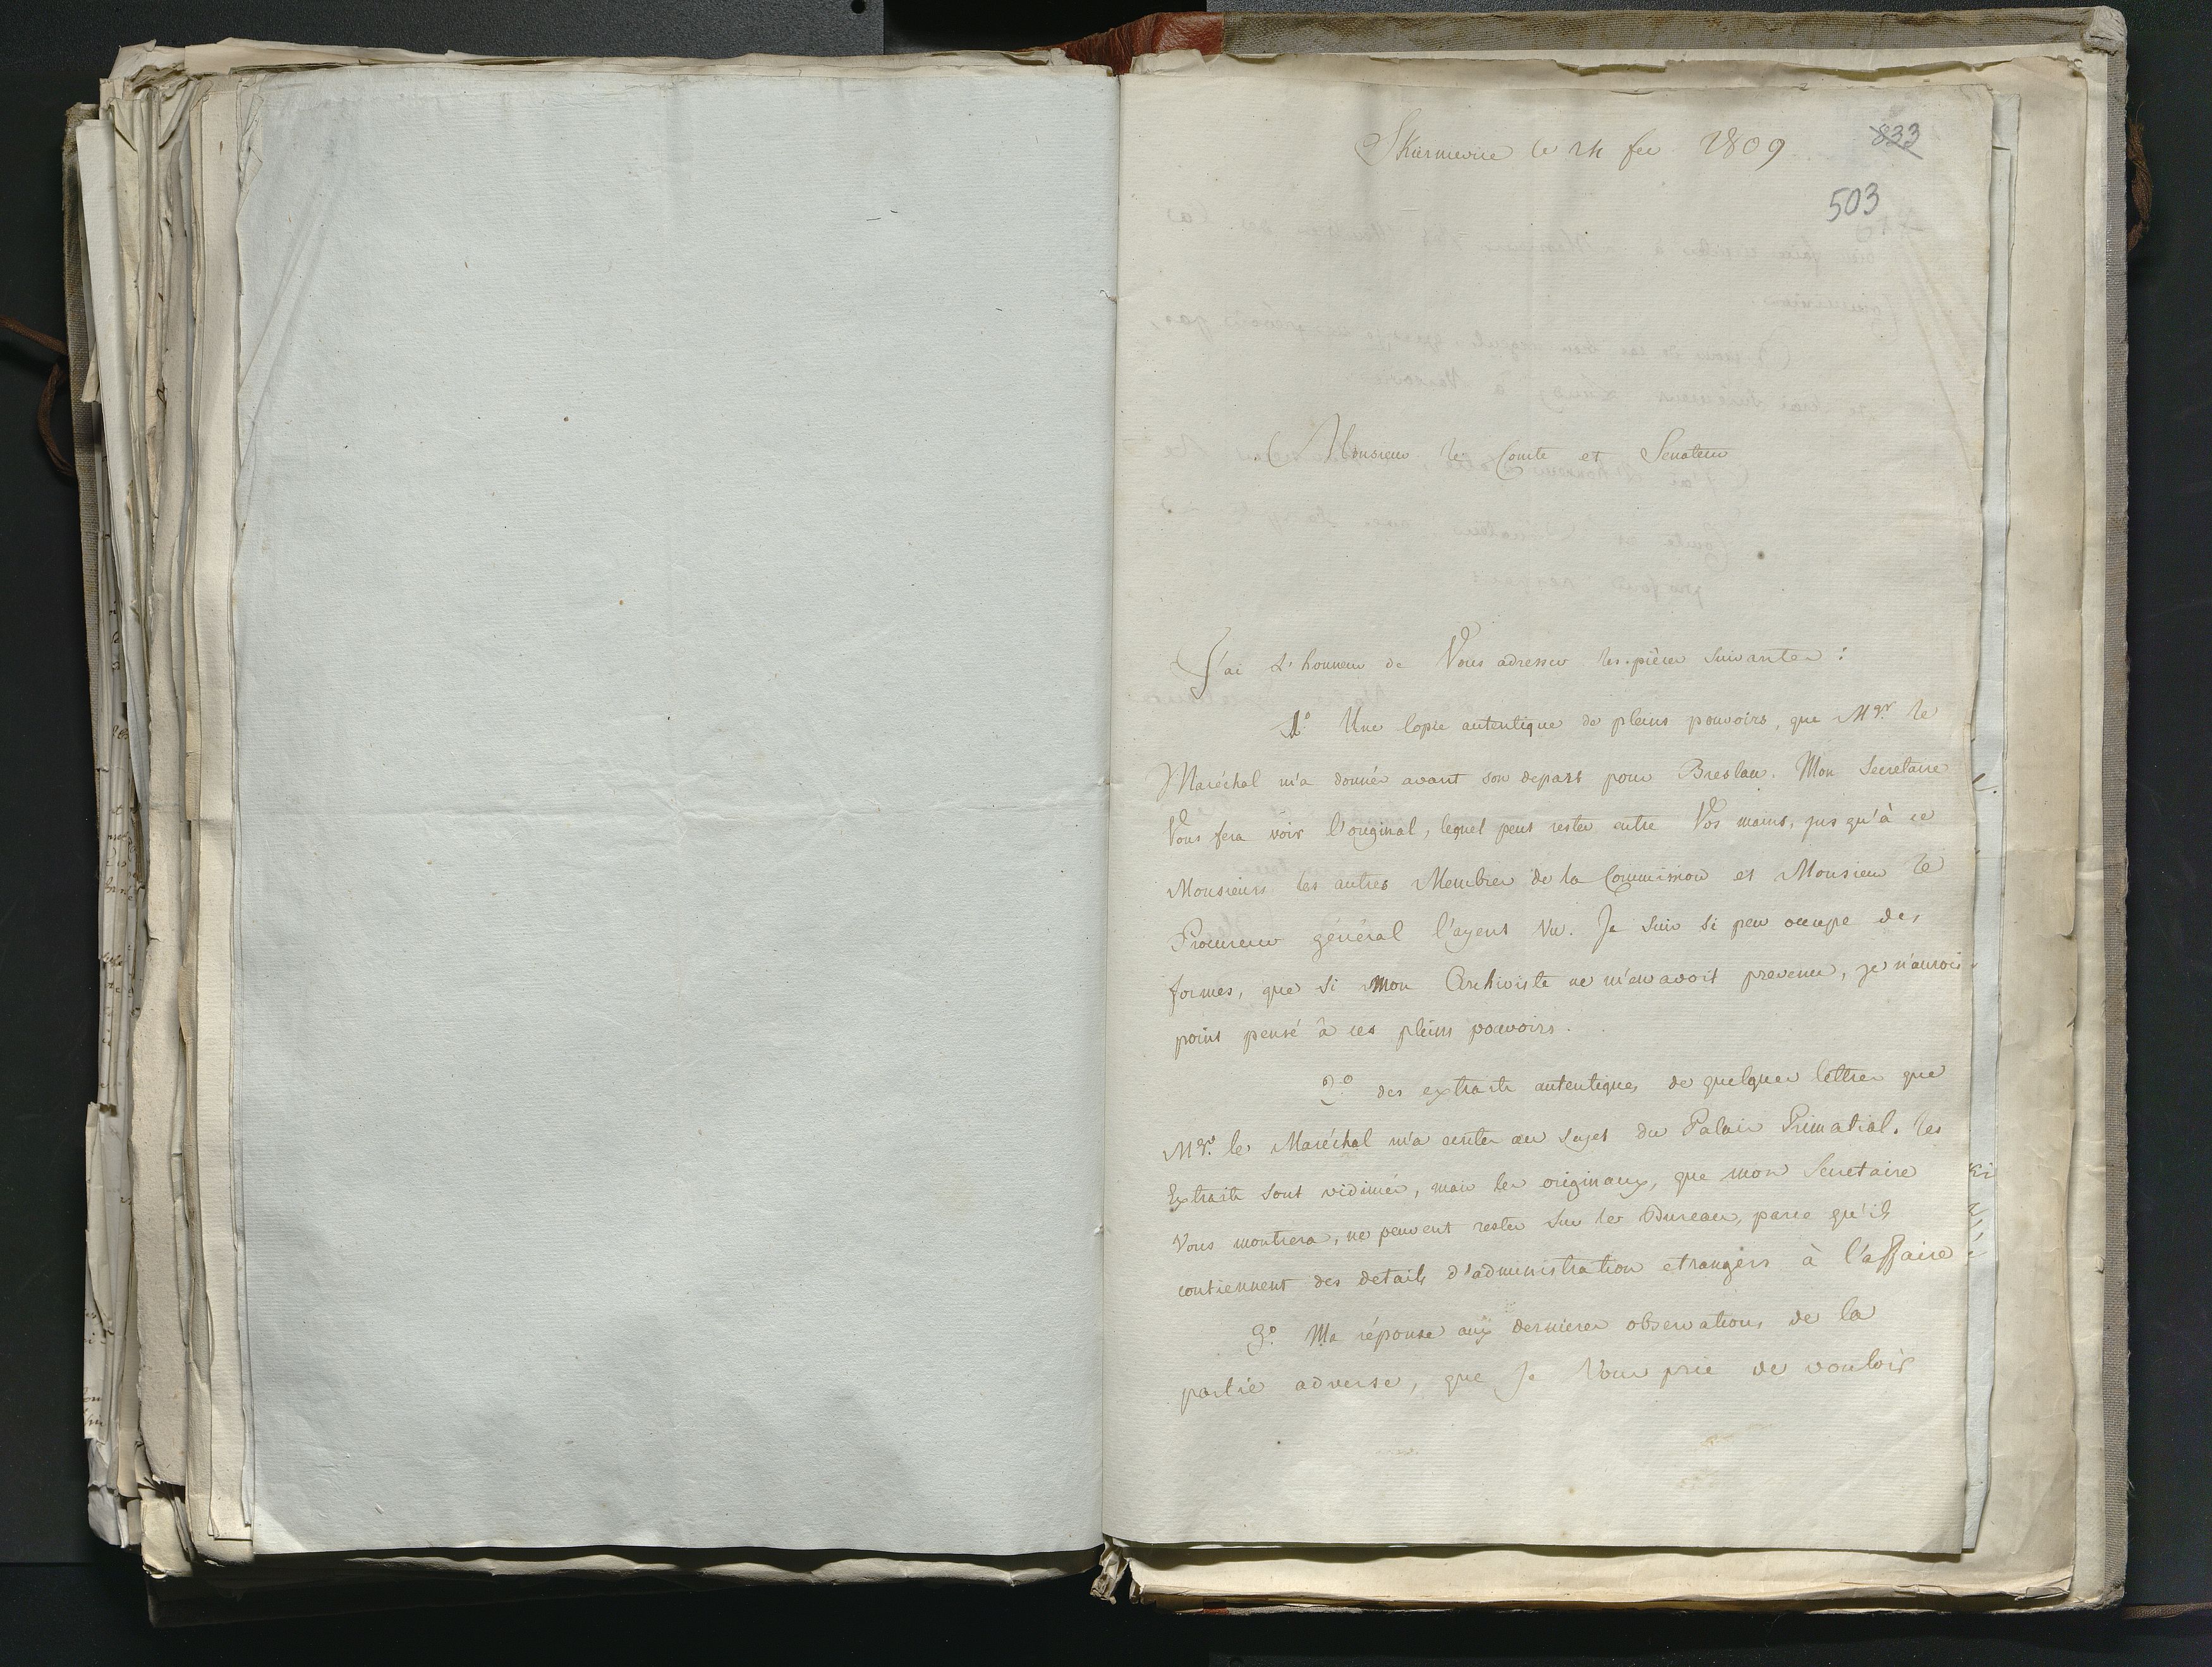 Skierniewice le 24 fev 1809
833
503
Monsieur le Comte et Senateur
J'ai l'honneur de Vous adresser les pièces suivantes :
1º Une Copie autentique de pleins pouvoirs, que Mgr. le
Maréchal m'a donnés avant son depart pour Breslau. Mon Secretaire
Vous fera voir l'original, lequel peut rester entre Vos mains, jusqu'à ce
Monsieurs les autres Membres de la Commission et Monsieur le
Procureur général l'ayent vu. Je suis si peu occupé des
formes, que si mon Archiviste ne m'en avoit prevenu, je n'aurois
point pensé à ces pleins pouvoirs.
2º des extraits autentiques de quelques lettres que
Mgr. le Maréchal m'a ecrites au sujet du Palais Primatial. les
Extraits sont vidimés, mais les originaux, que mon Secretaire
Vous montrera, ne peuvent rester sur le Bureau, parce qu'ils
contiennent des details d'administration etrangers à l'affaire
3º Ma réponse aux dernieres observations de la
partie adverse, que Je Vous prie de vouloir